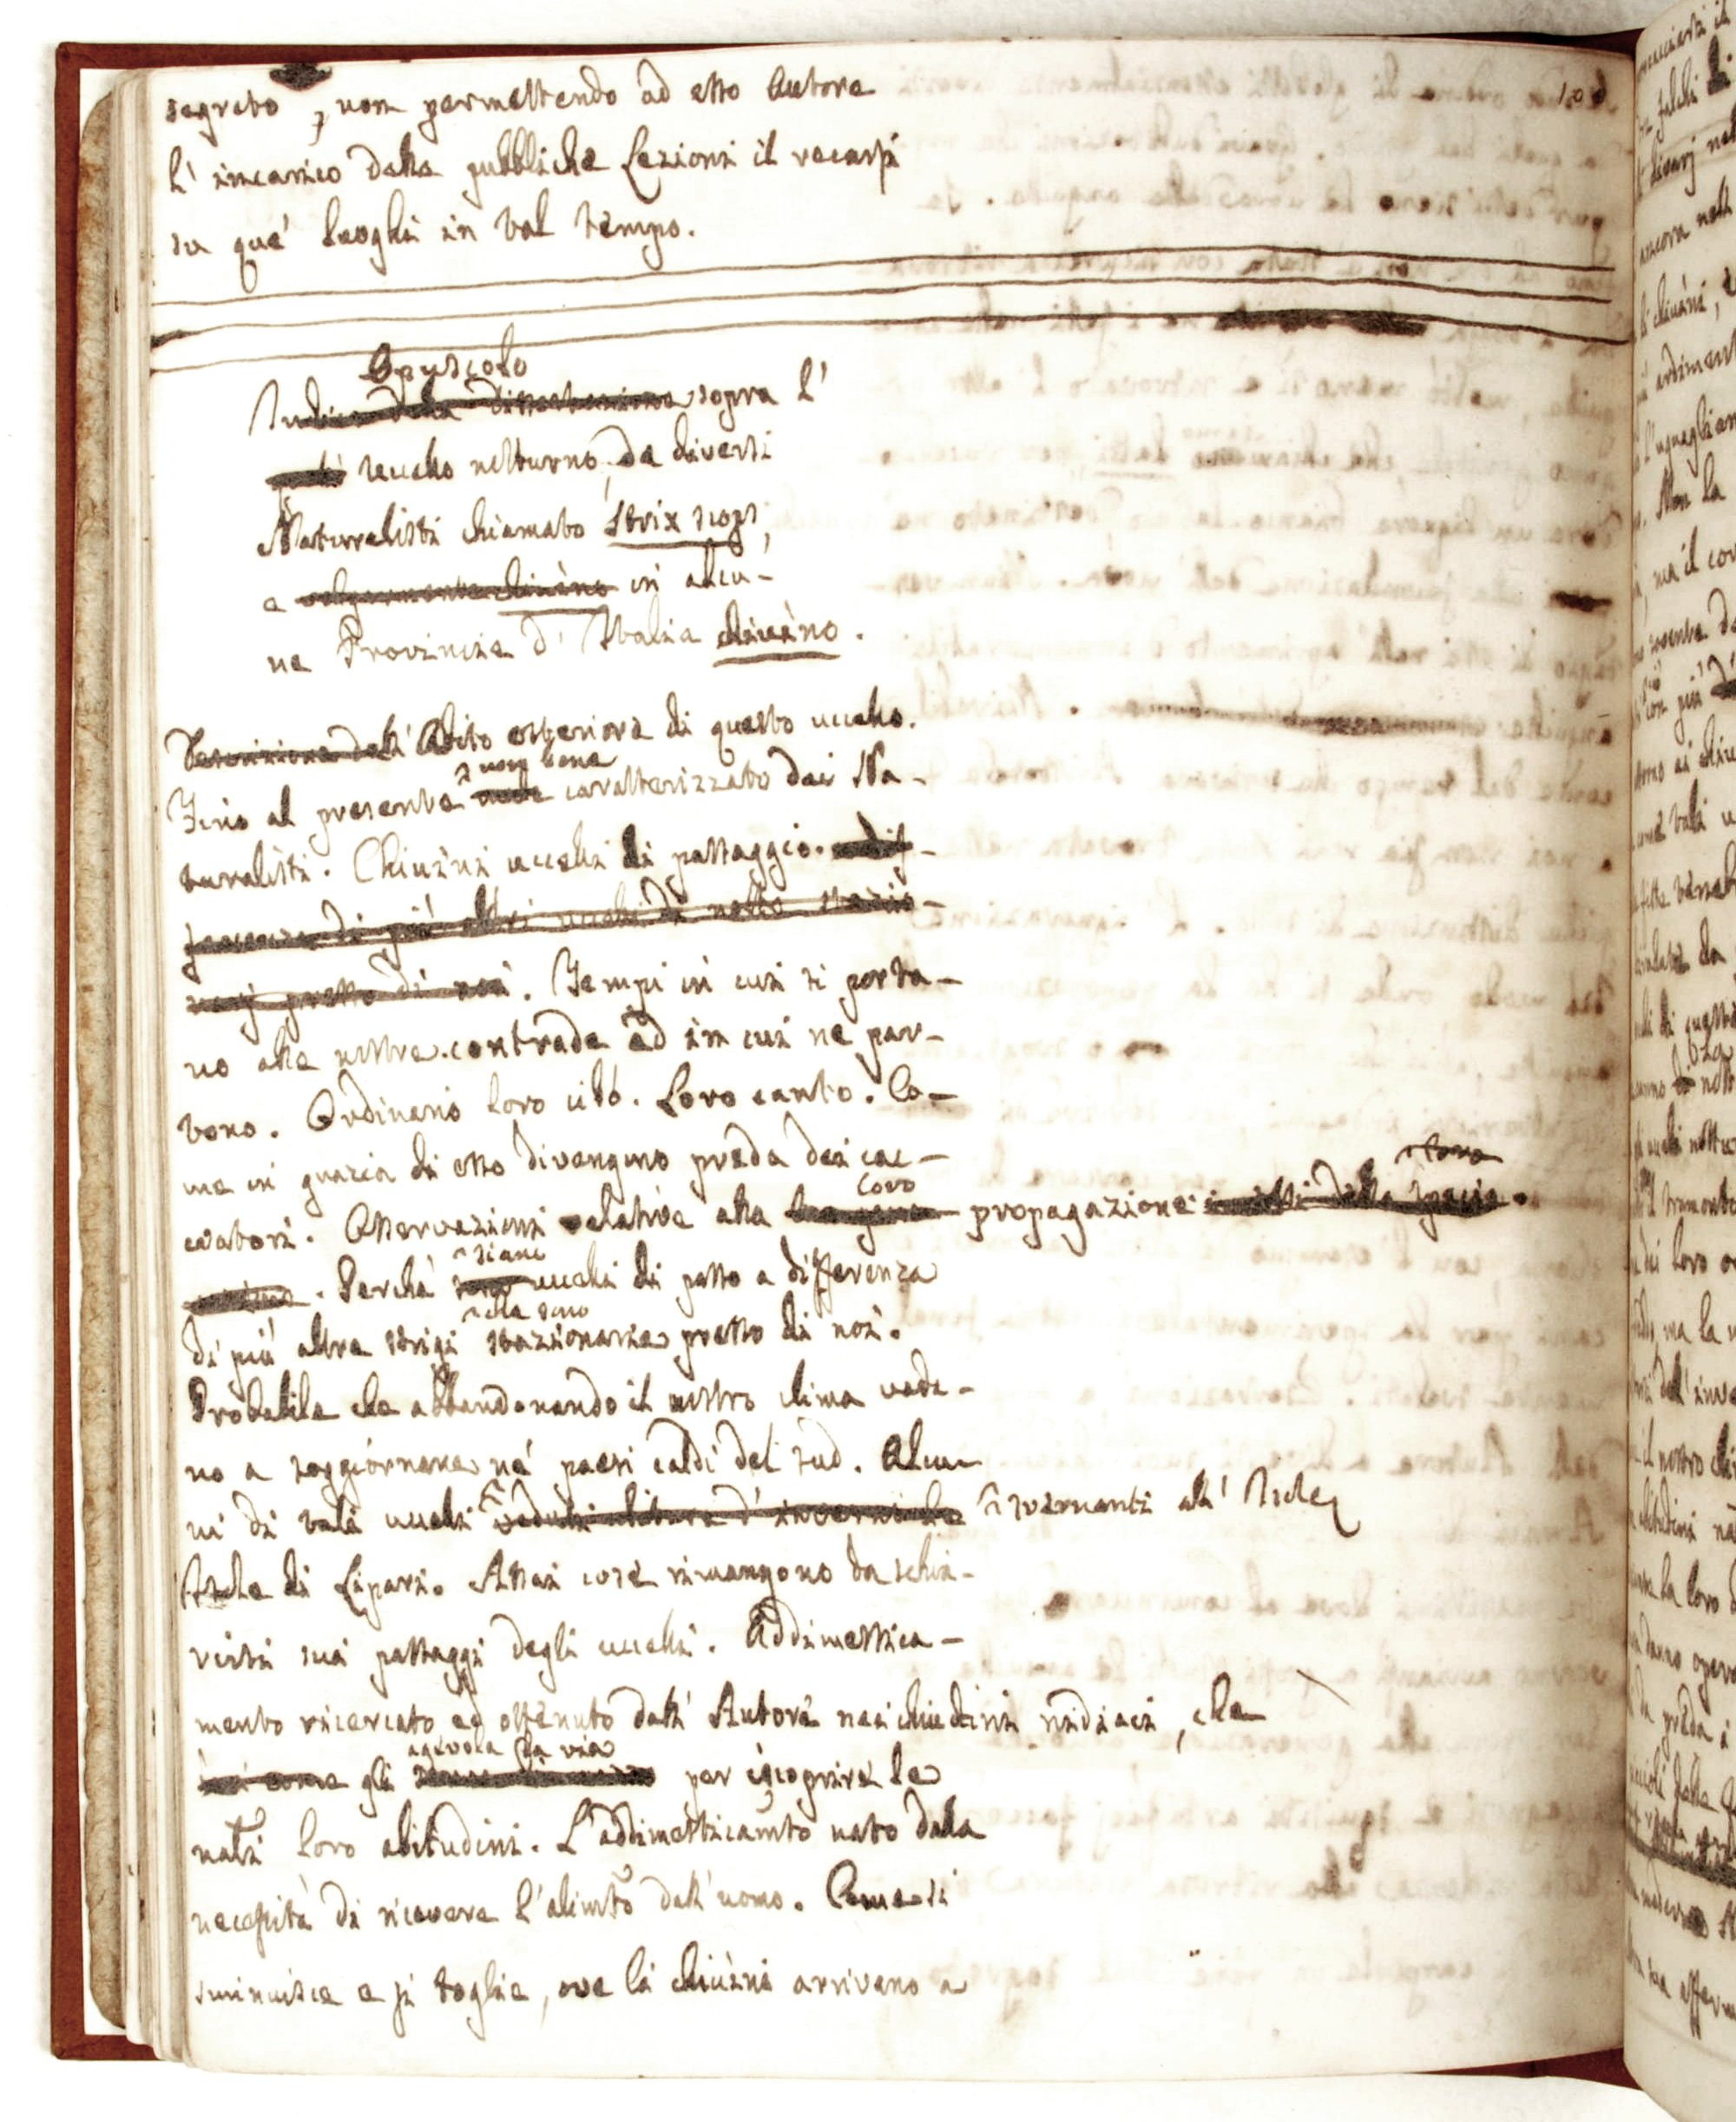 segreto, non permettendo ad esso Autore
l' incarico delle pubbliche Lezioni il recarsi
su que' luoghi in tal tempo.
Opuscolo
Indice della dissertazione sopra l'
uccello notturno, da diversi
Naturalisti chiamato Strix scops,
e volgarmente chiuino in alcu-
ne Provincie d' Italia chiuino.
Descrizione dell' Abito esteriore di questo uccello.
non bene
Fino al presente male caratterizzato dai Na-
turalisti. Chiuini uccelli di passaggio. a dif-
ferenza di più altri uccelli di notte stazio-
narj presso di noi. Tempi in cui si porta-
no alle nostre contrade ed in cui ne par-
tono. Ordinario loro cibo. Loro canto. Co-
me in grazia di esso divengono preda dei cac-
loro
ciatori. Osservazioni relative alla propagazione della specie.
siano
Perchè sono uccelli di passo a differenza
che sono
di più altre strigi stazionarie presso di noi.
Probabile che abbandonando il nostro clima vada-
no a soggiornare ne' paesi caldi del sud. Alcu-
ni di tali uccelli veduti svernanti all' Isole
Isole di Lipari. Assai cose rimangono da schia-
rirsi sui passaggi degli uccelli. Addimestica-
mento ricercato ed ottenuto dall' Autore nei chiuini nidiaci, che
agevola la via
gli per iscoprire le
nat.i loro abitudini. L'addimesticam.to nato dalla
necessità di ricevere l'alim.to dall'uomo. Come si
sminuisce e si toglie, ove li chiuini arrivano a